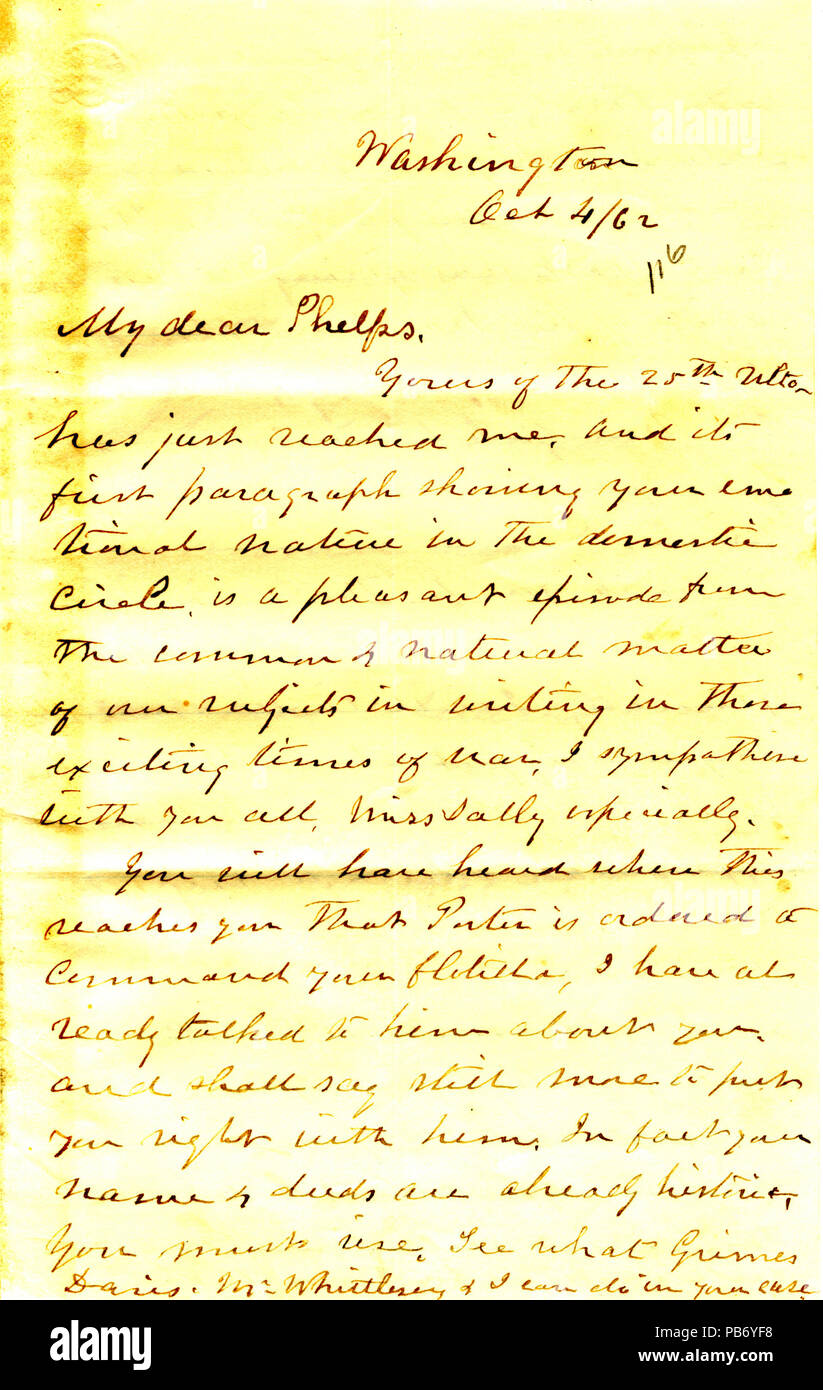 Washington
Oct 4/62
116
My dear Phelps.
Yours of the 25th Ulto
has just reached me, and its
first paragraph showing your emo
tional nature in the domestic
circle, is a pleasant episode from
the common & natural matter
of our subjects in writing in these
exciting times of war, I sympathise
with you all, Miss Sally especially.
You will have heard when this
reaches you that Porter is ordered to
command your flotilla, I have al
ready talked to him about you,
and shall say still more to put
you right with him. In fact your
name & deeds are already historic,
You must rise, See what Grimes
Davis. Mr Whittlesey & I can do in your case
alamy
Image ID: PB6YF8
www.alamy.com